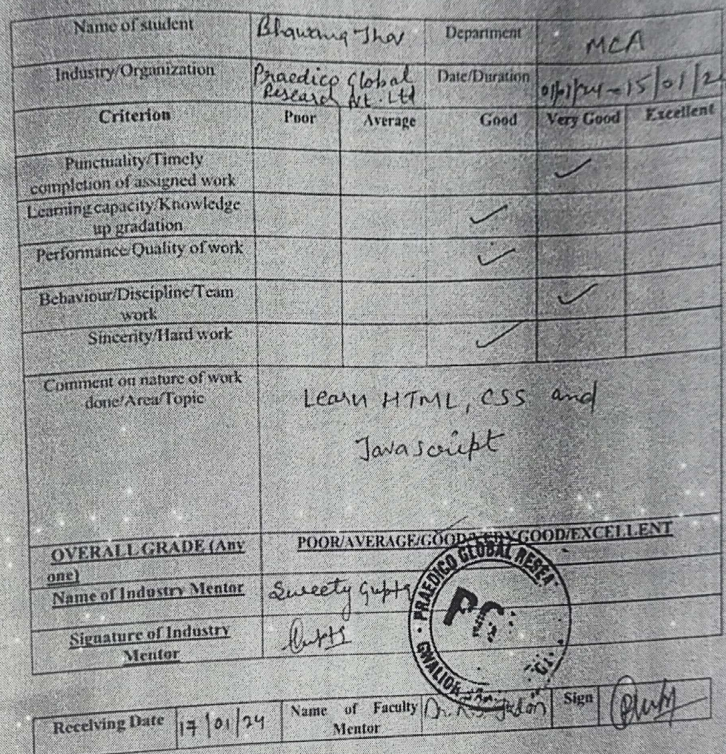 Name of student Department MCA
Industry/Organization Praedico Global Research Pvt. Ltd Date/Duration 01/01/24 - 15/01/2
Criterion Poor Average Good Very Good Excellent
Punctuality/Timely
completion of assigned work ✓
Learning capacity/Knowledge
up gradation ✓
Performance/Quality of work ✓
Behaviour/Discipline/Team
work ✓
Sincerity/Hard work ✓
Comment on nature of work
done/Area/Topic
Learn HTML, CSS and
Javascript
OVERALL GRADE (Any
one) POOR/AVERAGE/GOOD/VERY GOOD/EXCELLENT
Name of Industry Mentor Sweety Gupta
Signature of Industry
Mentor Gupta
PRAEDICO GLOBAL RESEA
GWALIOR
Receiving Date 17/01/24 Name of Faculty
Mentor Dr. Sign